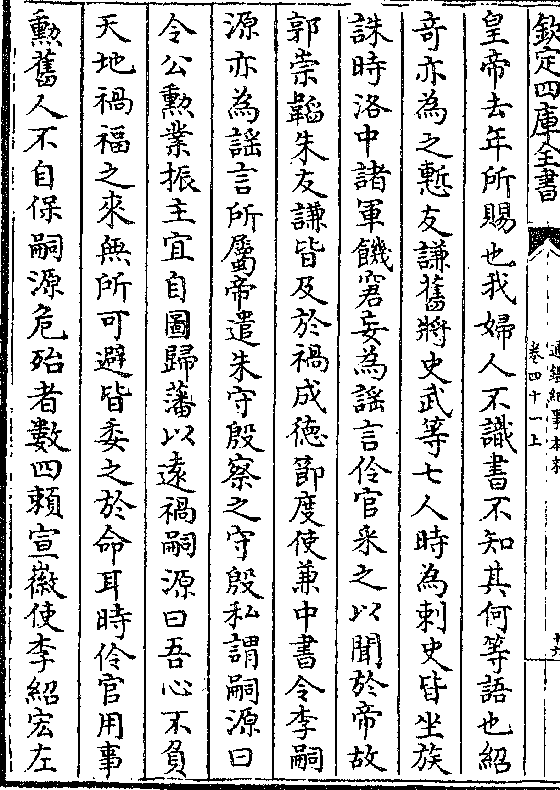 欽定四庫全書
通鑑紀事本末
卷四十一上
皇帝去年所賜也我婦人不識書不知其何等語也紹
奇亦為之慙友謙舊將史武等七人時為刺史皆坐族
誅時洛中諸軍饑窘妄為謡言伶官采之以聞於帝故
郭崇韜朱友謙皆及於禍成德節度使兼中書令李嗣
源亦為謡言所屬帝遣朱守殷察之守殷私謂嗣源曰
令公勲業振主宜自圖歸藩以遠禍嗣源曰吾心不負
天地禍福之來無所可避皆委之於命耳時伶官用事
勲舊人不自保嗣源危殆者數四頼宣徽使李紹宏左